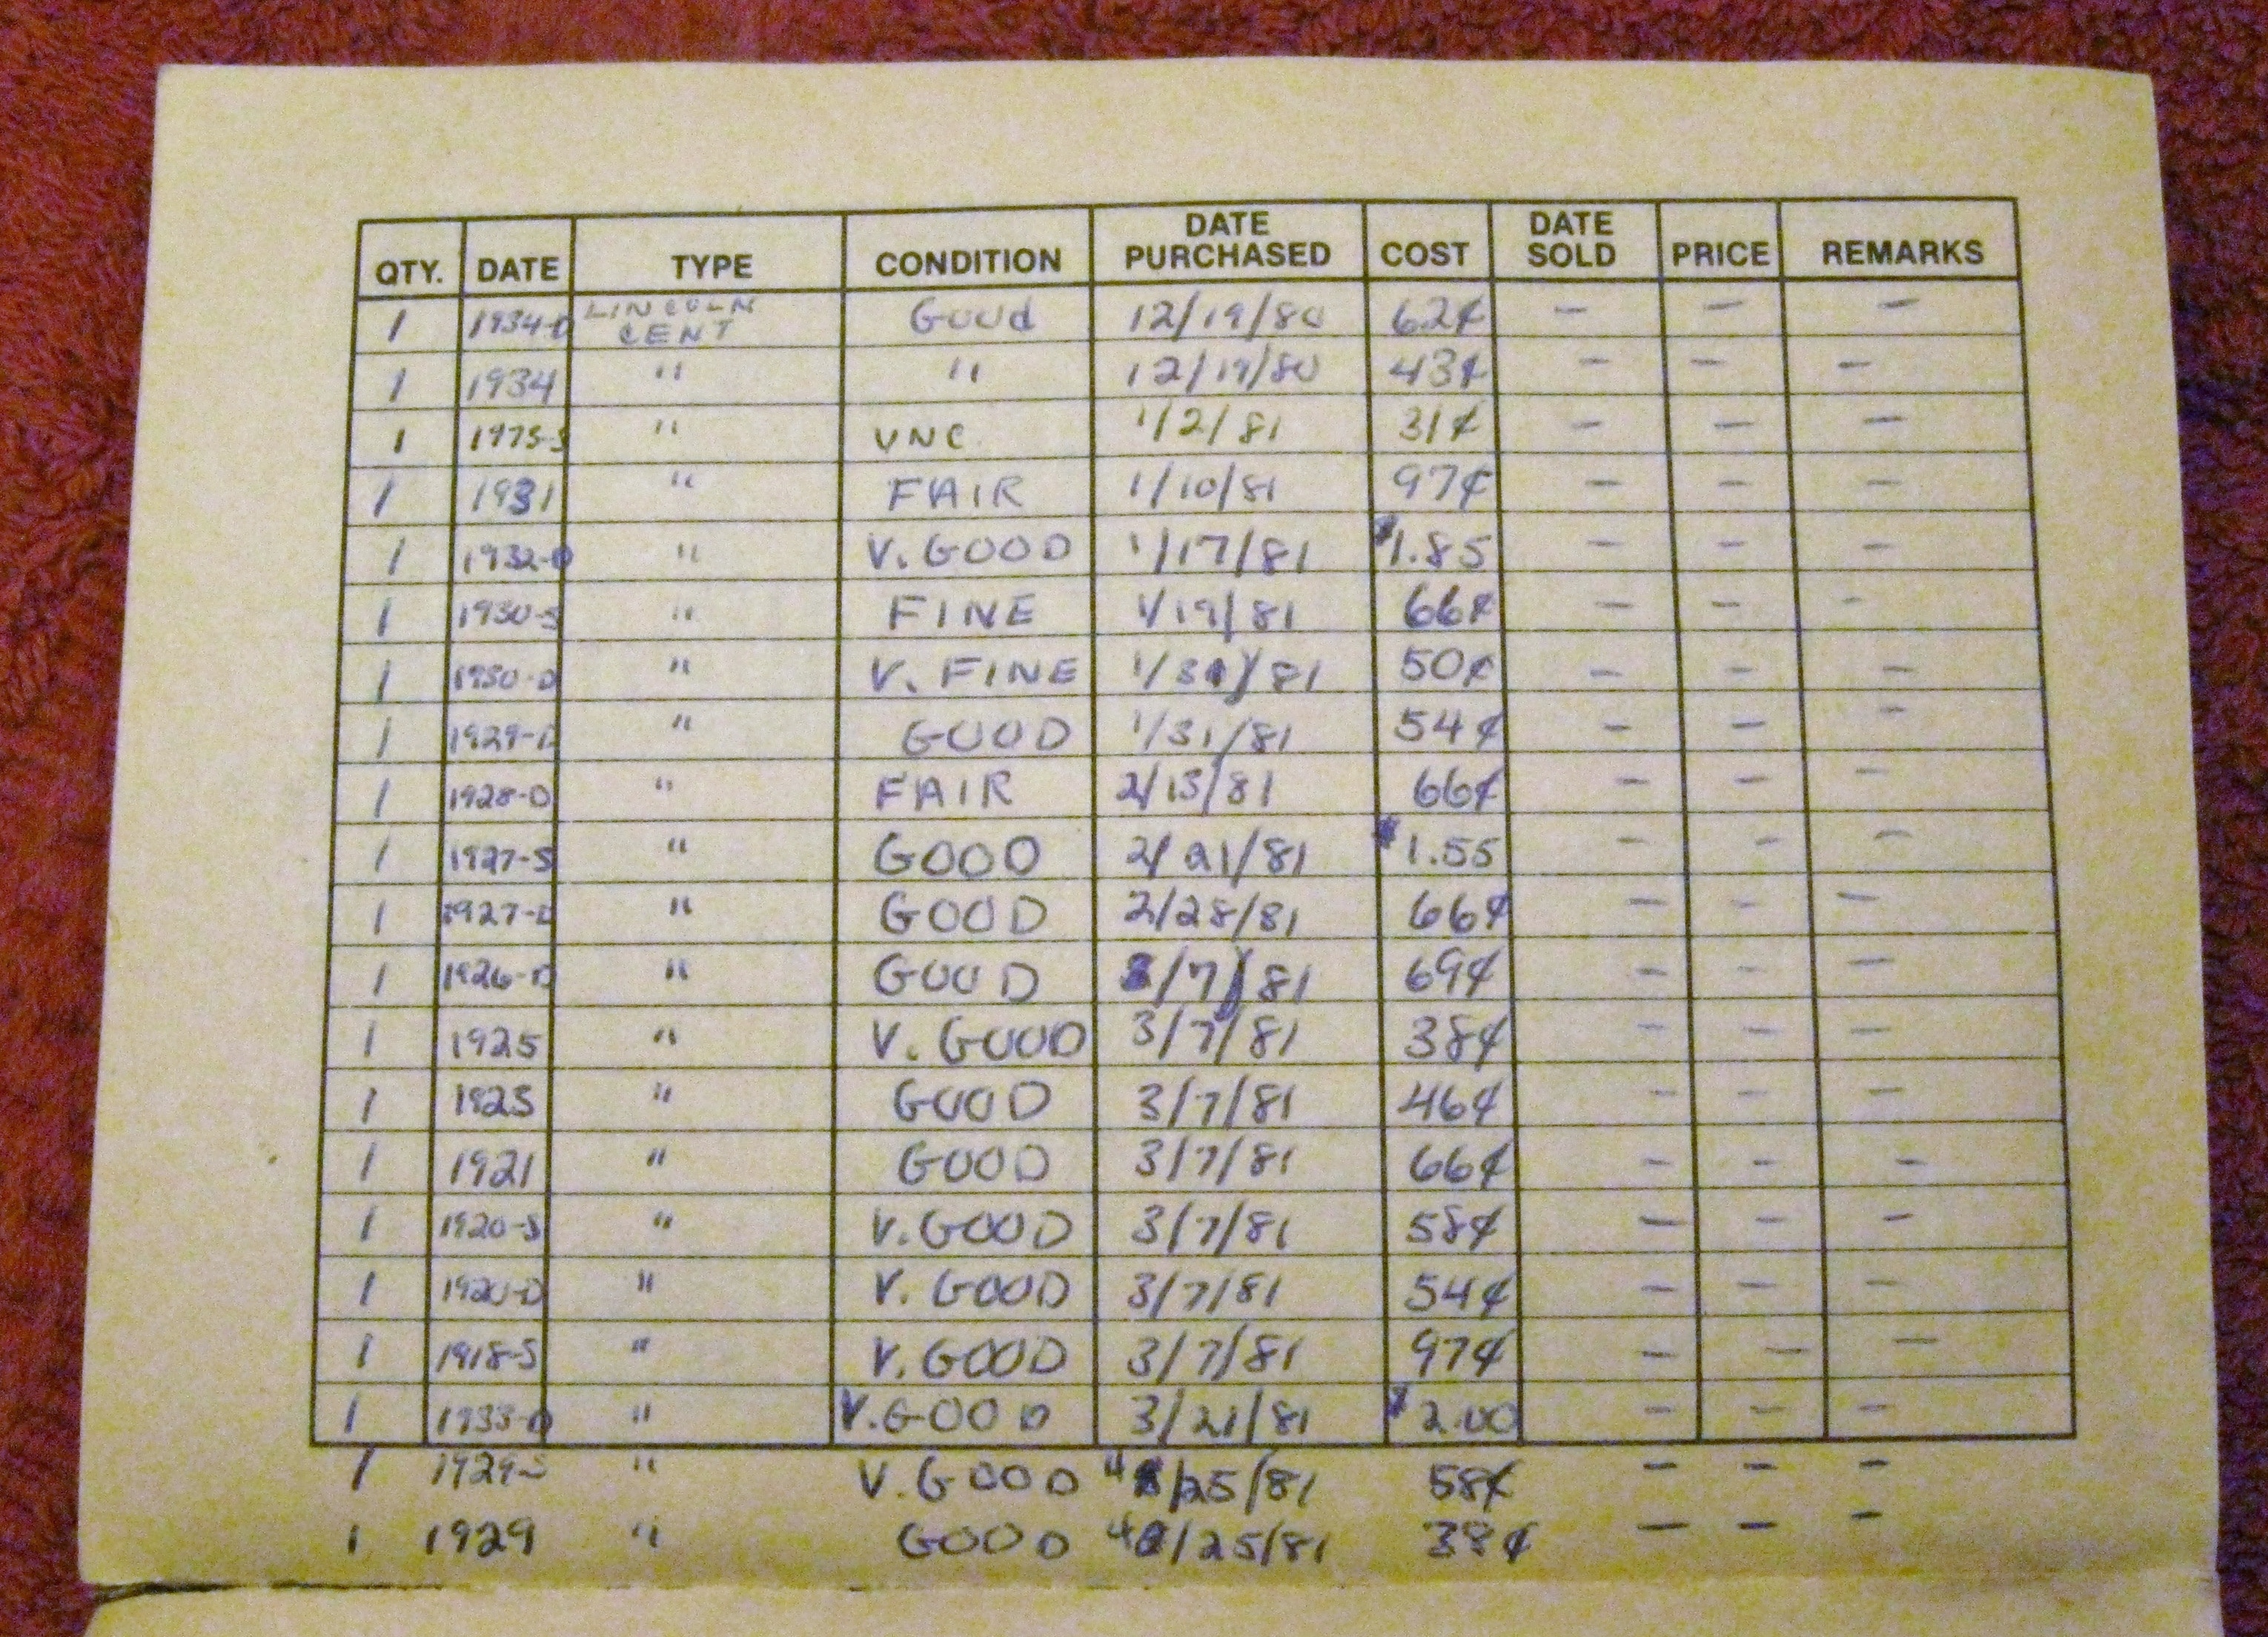 QTY. DATE TYPE CONDITION DATE PURCHASED COST DATE SOLD PRICE REMARKS
1 1934-D LINCOLN CENT Good 12/19/80 62¢ — — —
1 1934 " " 12/19/80 43¢ — — —
1 1975-S " UNC. 1/2/81 31¢ — — —
1 1931 " FAIR 1/10/81 97¢ — — —
1 1932-D " V. GOOD 1/17/81 $1.85 — — —
1 1930-S " FINE 1/19/81 66¢ — — —
1 1930-D " V. FINE 1/31/81 50¢ — — —
1 1929-D " GOOD 1/31/81 54¢ — — —
1 1928-D " FAIR 2/13/81 66¢ — — —
1 1927-S " GOOD 2/21/81 $1.55 — — —
1 1927-D " GOOD 2/28/81 66¢ — — —
1 1926-D " GOOD 3/7/81 69¢ — — —
1 1925 " V. GOOD 3/7/81 38¢ — — —
1 " GOOD 3/7/81 46¢ — — —
1 1921 " GOOD 3/7/81 66¢ — — —
1 1920-S " V. GOOD 3/7/81 58¢ — — —
1 1920-D " V. GOOD 3/7/81 54¢ — — —
1 1918-S " V. GOOD 3/7/81 97¢ — — —
1 1933-D " V. GOOD 3/21/81 $2.00 — — —
1 1929-S " V. GOOD 4/25/81 58¢ — — —
1 1929 " GOOD 4/25/81 38¢ — — —